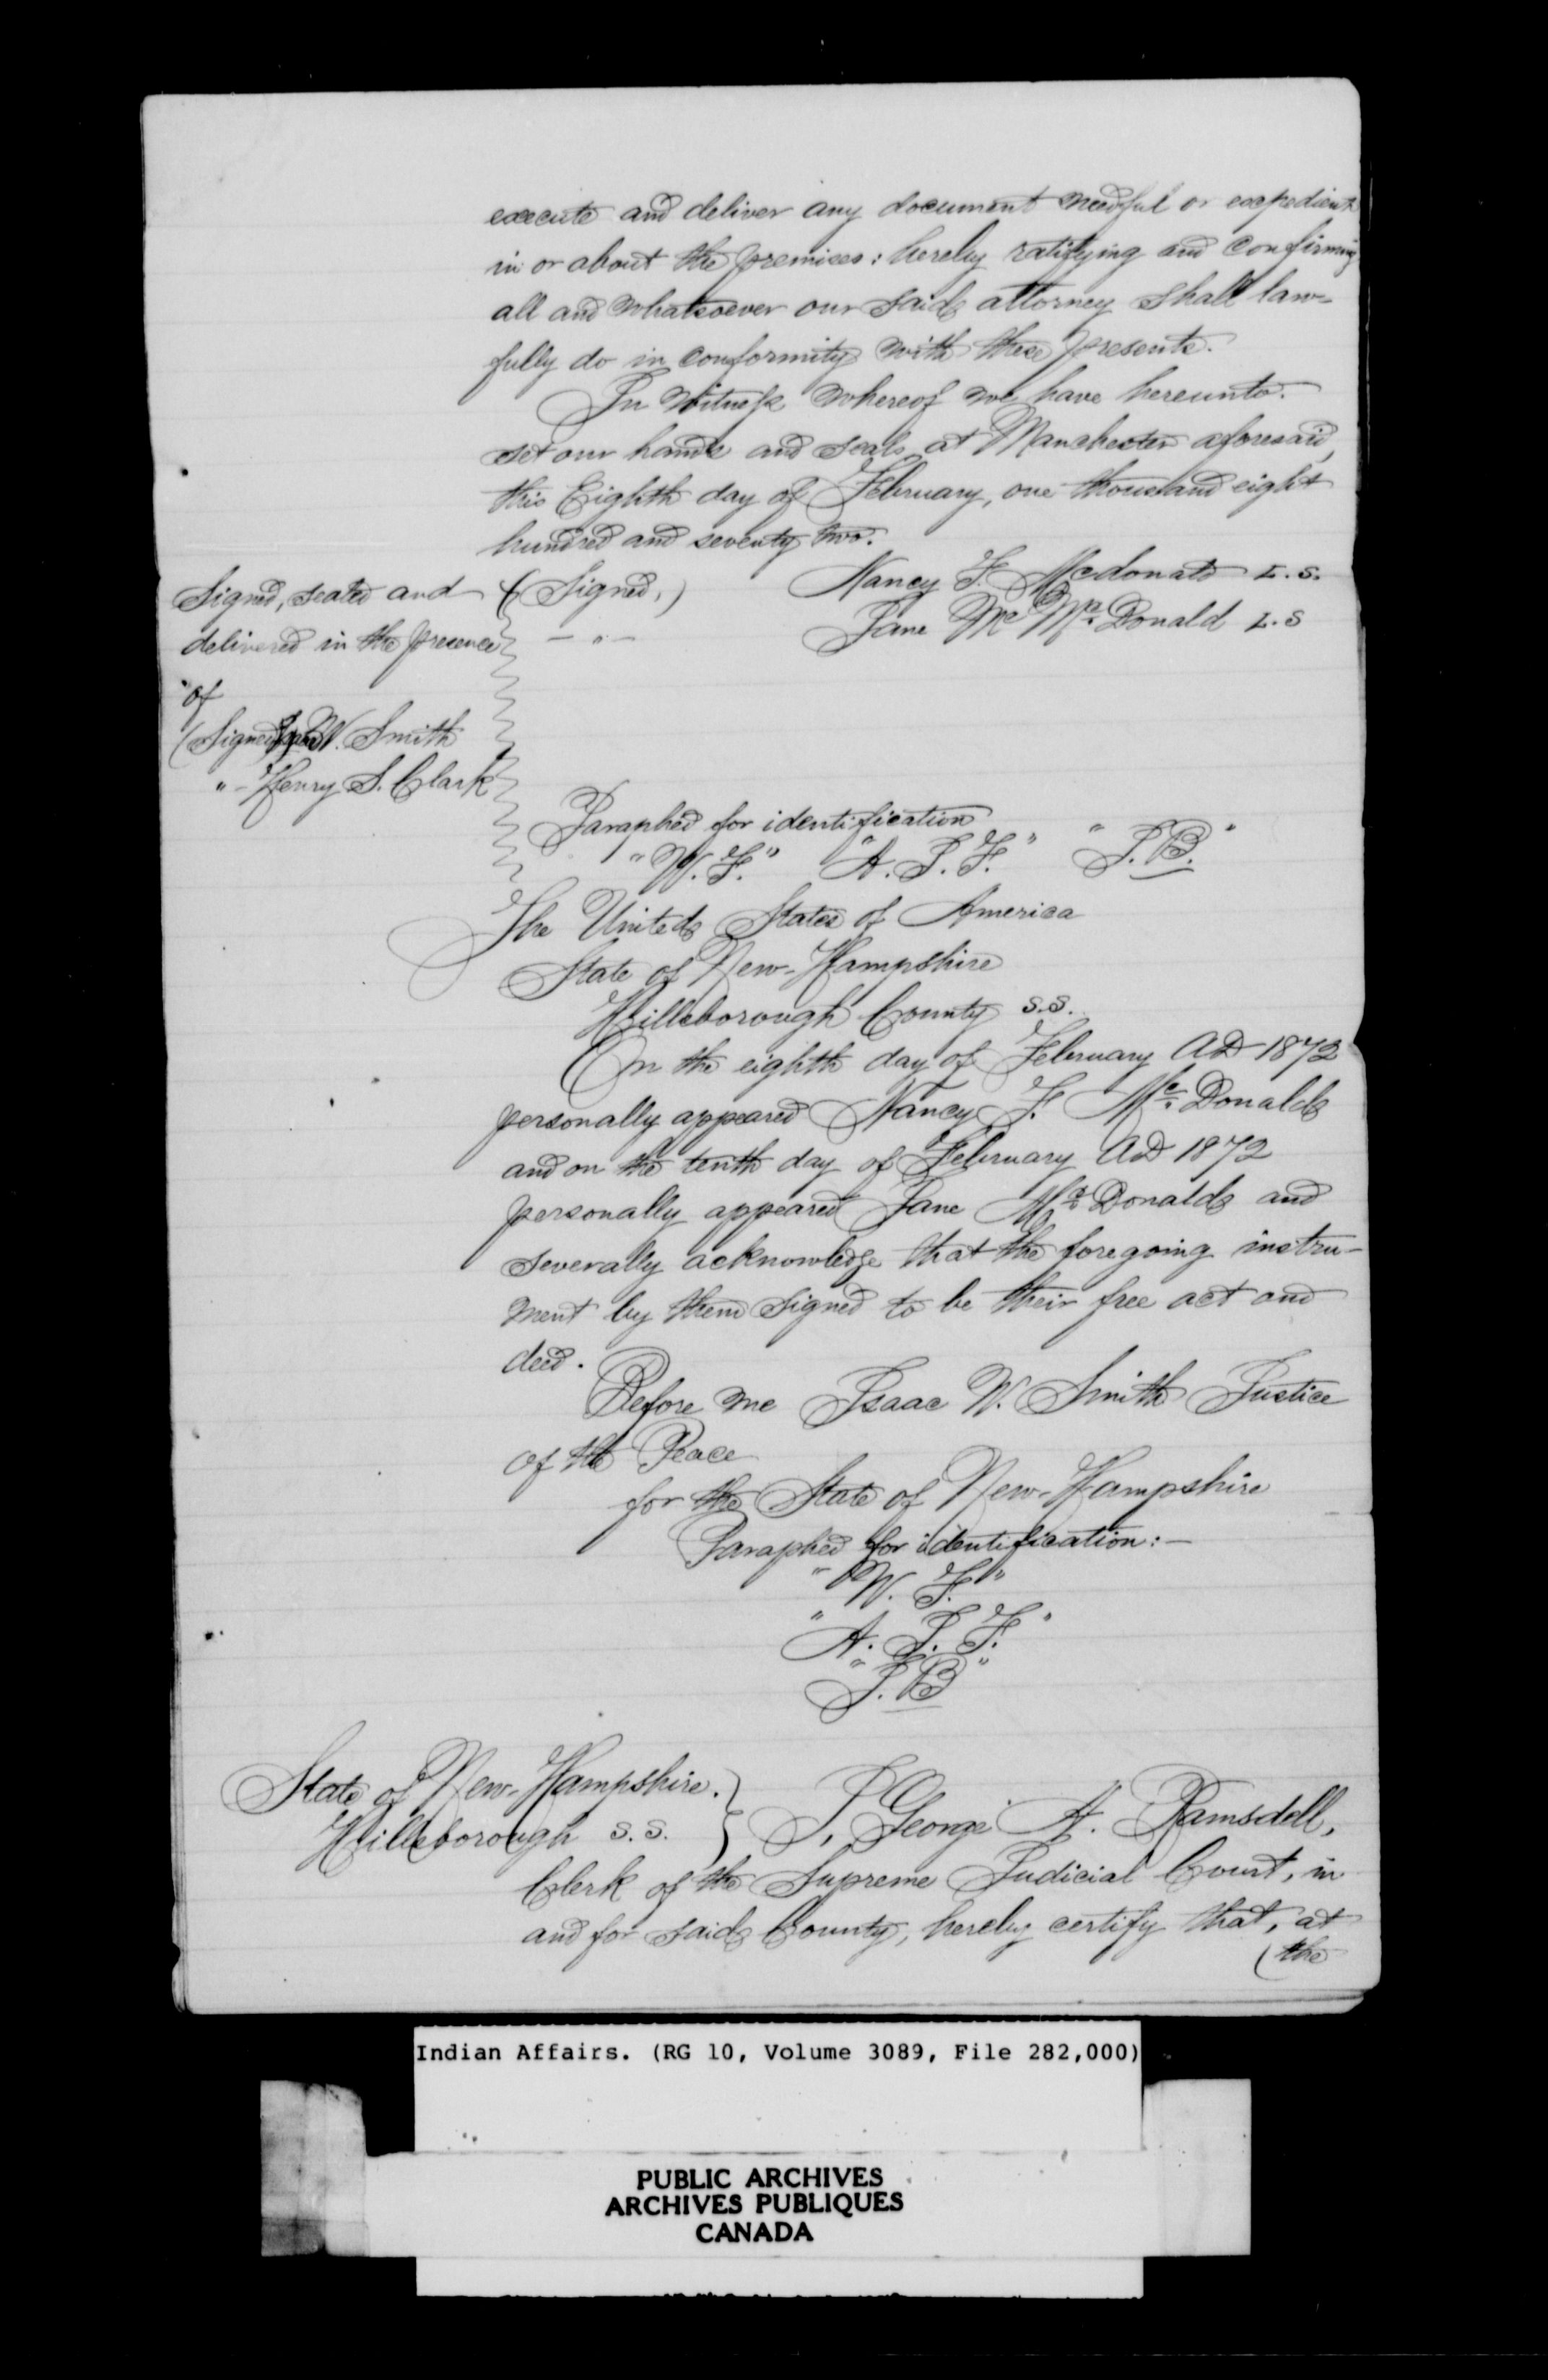 execute and deliver any document needful or expedient
in or about the premises: hereby ratifying and confirming
all and whatsoever our said attorney shall law-
fully do in conformity with these presents.
In Witness whereof we have hereunto
set our hands and seals at Manchester aforesaid,
this Eighth day of February, one thousand eight
hundred and seventy two.
Signed, sealed and (Signed,) Nancy F. Mcdonald L.S.
delivered in the presence — " — Jane Mc Donald L.S
of
(Signed) W. Smith
" - Henry S. Clark
Paraphed for identification
"W.F." "A.P.F." "J.B."
The United States of America
State of New-Hampshire
Hillsborough County s.s.
On the eighth day of February AD 1872
personally appeared Nancy F. Mc Donald
and on the tenth day of February AD 1872
personally appeared Jane Mc Donald and
severally acknowledge that the foregoing instru-
ment by them signed to be their free act and
deed.
Before me Isaac W. Smith Justice
of the Peace
for the State of New-Hampshire
Paraphed for identification:-
"W. F."
"A. P. F."
"J. B"
State of New-Hampshire. }
Hillsborough s.s. } I, George A. Ramsdell,
Clerk of the Supreme Judicial Court, in
and for said County, hereby certify that, at
(the
Indian Affairs. (RG 10, Volume 3089, File 282,000)
PUBLIC ARCHIVES
ARCHIVES PUBLIQUES
CANADA